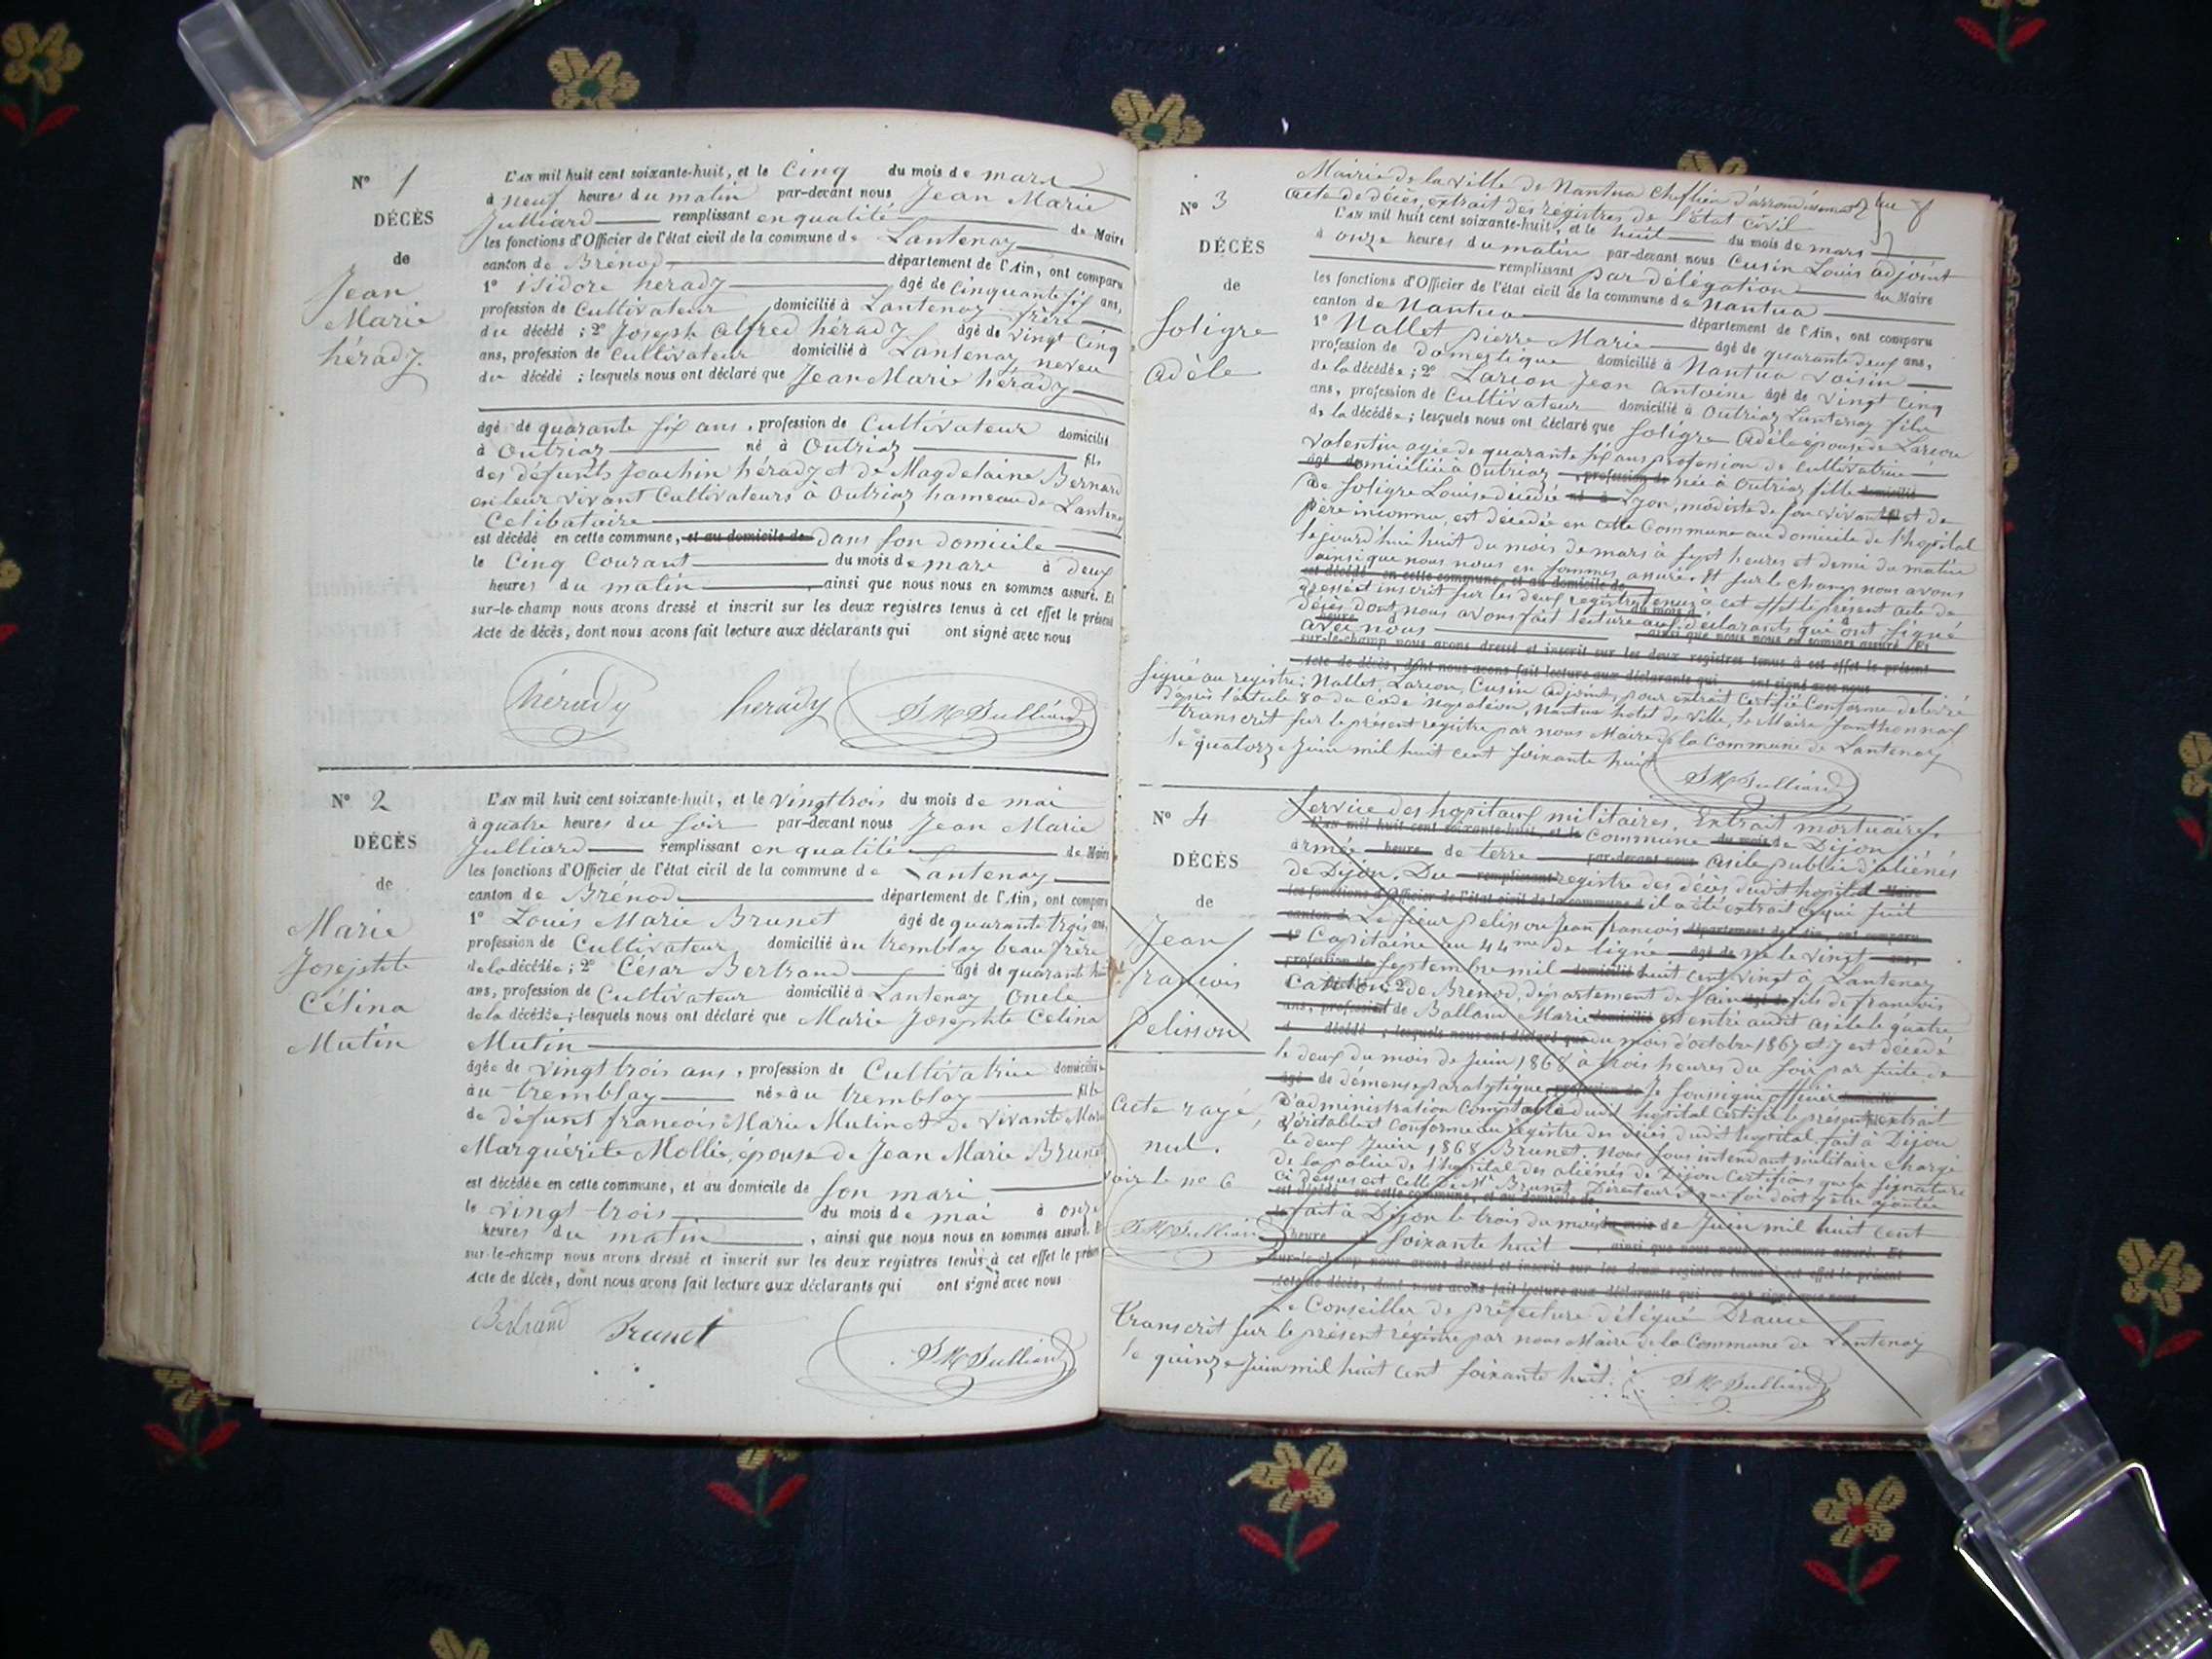 N° 1
DÉCÈS
de
Jean
Marie
hérady.
L'AN mil huit cent soixante-huit, et le Cinq du mois de mars
à neuf heures du matin par-devant nous Jean Marie
Julliard remplissant en qualité de Maire
les fonctions d'Officier de l'état civil de la commune de Lantenay
canton de Brénod département de l'Ain, ont comparu
1° isidore herady âgé de Cinquante six ans,
profession de Cultivateur domicilié à Lantenay frère
du décédé ; 2° Joseph Alfred hérady âgé de vingt Cinq
ans, profession de Cultivateur domicilié à Lantenay neveu
du décédé ; lesquels nous ont déclaré que Jean Marie hérady
âgé de quarante six ans, profession de Cultivateur domicilié
à Outriaz né à Outriaz fils
des défunts Joachin hérady et de Magdelaine Bernard
en leur vivant Cultivateurs à Outriaz hameau de Lantenay
Celibataire
est décédé en cette commune, et au domicile de dans son domicile
le Cinq Courant du mois de mars à deux
heures du matin ainsi que nous nous en sommes assuré. Et
sur-le-champ nous avons dressé et inscrit sur les deux registres tenus à cet effet le présent
Acte de décès, dont nous avons fait lecture aux déclarants qui ont signé avec nous
hérady herady J M Julliard
N° 2
DÉCÈS
de
Marie
Josephte
Célina
Mutin
L'AN mil huit cent soixante-huit, et le vingt trois du mois de mai
à quatre heures du soir par-devant nous Jean Marie
Julliard remplissant en qualité de Maire
les fonctions d'Officier de l'état civil de la commune de Lantenay
canton de Brénod département de l'Ain, ont comparu
1° Louis Marie Brunet âgé de quarante trois ans,
profession de Cultivateur domicilié au tremblay beau frère
de la décédée ; 2° César Bertrand âgé de quarante
ans, profession de Cultivateur domicilié à Lantenay Oncle
de la décédée ; lesquels nous ont déclaré que Marie Josephte Célina
Mutin
âgée de vingt trois ans, profession de Cultivatrice domiciliée
au tremblay née au tremblay fille
de défunt françois Marie Mutin et de vivante
Marguérite Mollie, épouse de Jean Marie Brunet
est décédée en cette commune, et au domicile de son mari
le vingt trois du mois de mai à onze
heures du matin, ainsi que nous nous en sommes assuré. Et
sur-le-champ nous avons dressé et inscrit sur les deux registres tenus à cet effet le présent
Acte de décès, dont nous avons fait lecture aux déclarants qui ont signé avec nous
Bertrand Brunet J M Julliard
Mairie de la ville de Nantua Cheflieu d'arrondissement
acte de décès, extrait des régistres de l'état civil
N° 3
DÉCÈS
de
Soligre
Adèle
L'AN mil huit cent soixante-huit, et le huit du mois de mars
à onze heures du matin par-devant nous Cusin Louis adjoint
remplissant par délégation du Maire
les fonctions d'Officier de l'état civil de la commune de Nantua
canton de Nantua département de l'Ain, ont comparu
1° Nallet pierre Marie âgé de quarante deux ans,
profession de domestique domicilié à Nantua voisin
de la décédée ; 2° Larson Jean Antoine âgé de vingt Cinq
ans, profession de Cultivateur domicilié à Outriaz Lantenay fils
de la décédée ; lesquels nous ont déclaré que Soligre Adèle épouse de Larson
Valentin agée de quarante six ans profession de cultivatrice
domiciliée à Outriaz née à Outriaz fille
de Soligre Louise décédée à Lyon, modiste de son vivant et de
père inconnu, est décédée en cette Commune au domicile de l'hopital
le jourd'hui huit du mois de mars à sept heures et demi du matin
ainsi que nous nous en sommes assuré. Et sur le champ nous avons
dressé et inscrit sur les deux registres tenus à cet effet le présent acte de
décès dont nous avons fait lecture aux déclarants qui ont signé
avec nous
sur-le-champ nous avons dressé et inscrit sur les deux registres tenus à cet effet le présent
Acte de décès, dont nous avons fait lecture aux déclarants qui ont signé avec nous
Signé au registre : Nallet, Larson, Cusin adjoint, pour extrait Certifié Conforme délivré
d'après l'article 80 du Code Napoléon, Nantua hotel de Ville, le Maire
transcrit sur le présent registre par nous Maire de la Commune de Lantenay
le quatorze Juin mil huit cent soixante huit J M Julliard
N° 4
DÉCÈS
de
Jean
françois
Pelisson
acte rayé,
nul.
voir le n° 6
J M Julliard
Service des hopitaux militaires. Extrait mortuaire.
Commune de Dijon
armée de terre asile public d'aliénés
de Dijon. Du registre des décès dudit hopital
il a été extrait ce qui suit
Le sieur pelisson Jean françois
Capitaine au 44me de ligne né le vingt
Septembre mil huit cent vingt à Lantenay
Canton de Brenod, département de l'ain fils de françois
et de Ballam Marie est entré audit asile le quatre
du mois d'octobre 1867 et y est décédé
le deux du mois de Juin 1868 à trois heures du soir par suite de
de démence paralytique Je soussigné officier
d'administration Comptable dudit hopital Certifie le présent extrait
véritable et conforme au registre des décès dudit hopital fait à Dijon
le deux Juin 1868 Brunet. Nous sous intendant militaire chargé
de la police de l'hopital des aliénés de Dijon Certifions que la signature
ci dessus est celle de Mr Brunet Directeur et que foi doit y être ajoutée
fait à Dijon le trois du mois de Juin mil huit cent
soixante huit
sur-le-champ nous avons dressé et inscrit sur les deux registres tenus à cet effet le présent
Acte de décès, dont nous avons fait lecture aux déclarants qui ont signé avec nous
Le Conseiller de préfecture délégué
Transcrit sur le présent régistre par nous Maire de la Commune de Lantenay
le quinze Juin mil huit cent soixante huit. J M Julliard